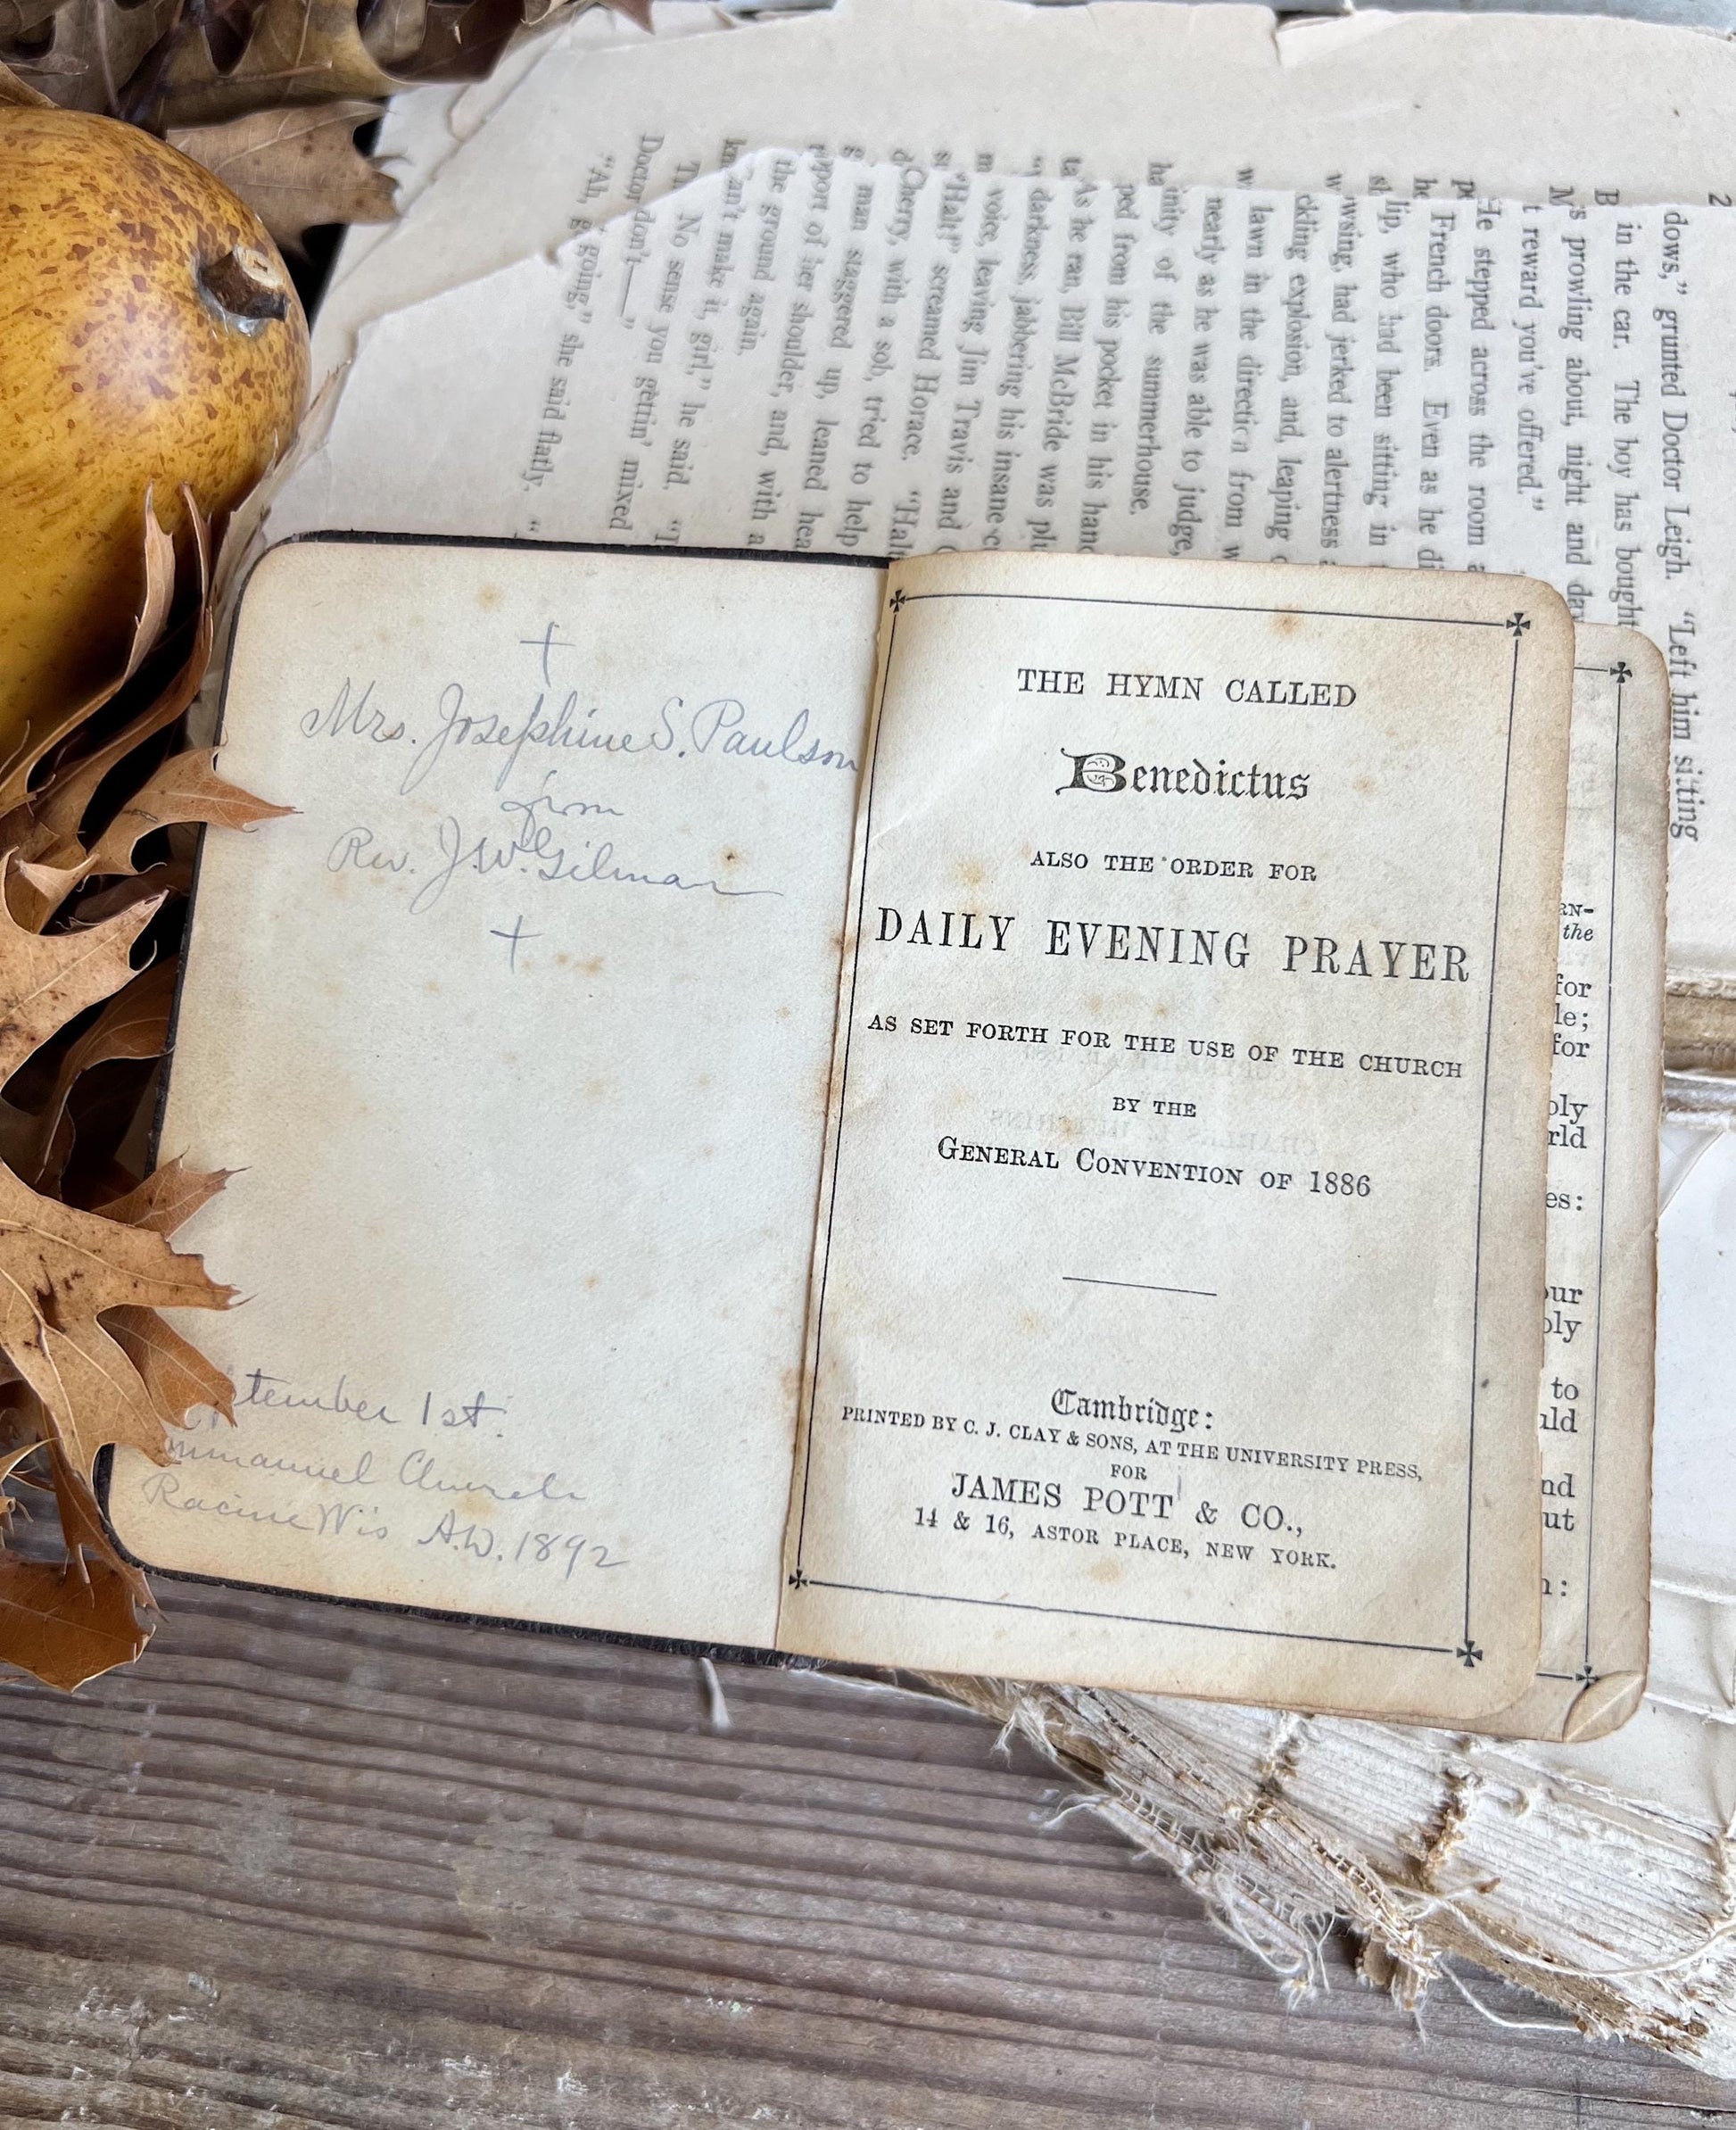 Mrs. Josephine S. Paulson
from
Rev. J.W. Gilman
tember 1st.
mmanuel Church
Racine Wis A.D. 1892
THE HYMN CALLED
Benedictus
ALSO THE ORDER FOR
DAILY EVENING PRAYER
AS SET FORTH FOR THE USE OF THE CHURCH
BY THE
GENERAL CONVENTION OF 1886
Cambridge:
PRINTED BY C. J. CLAY & SONS, AT THE UNIVERSITY PRESS,
FOR
JAMES POTT & CO.,
14 & 16, ASTOR PLACE, NEW YORK.
RN-
the
for
le;
for
oly
rld
es:
our
oly
to
uld
nd
ut
n:
2
dows," grunted Doctor Leigh. "Left him sitting
in the car. The boy has bought
's prowling about, night and day
t reward you've offered."
He stepped across the room a
French doors. Even as he di
lip, who had been sitting in
wsing, had jerked to alertness a
ckling explosion, and, leaping
lawn in the direction from w
nearly as he was able to judge,
inity of the summerhouse.
ped from his pocket in his hand
As he ran, Bill McBride was plu
darkness, jabbering his insane
voice, leaving Jim Travis and
"Halt!" screamed Horace. "Halt
Cherry, with a sob, tried to help
man staggered up, leaned hea
port of her shoulder, and, with a
the ground again.
an't make it, girl," he said. "I
No sense you gettin' mixed
Doctor don't——"
"Ah, going," she said flatly. "